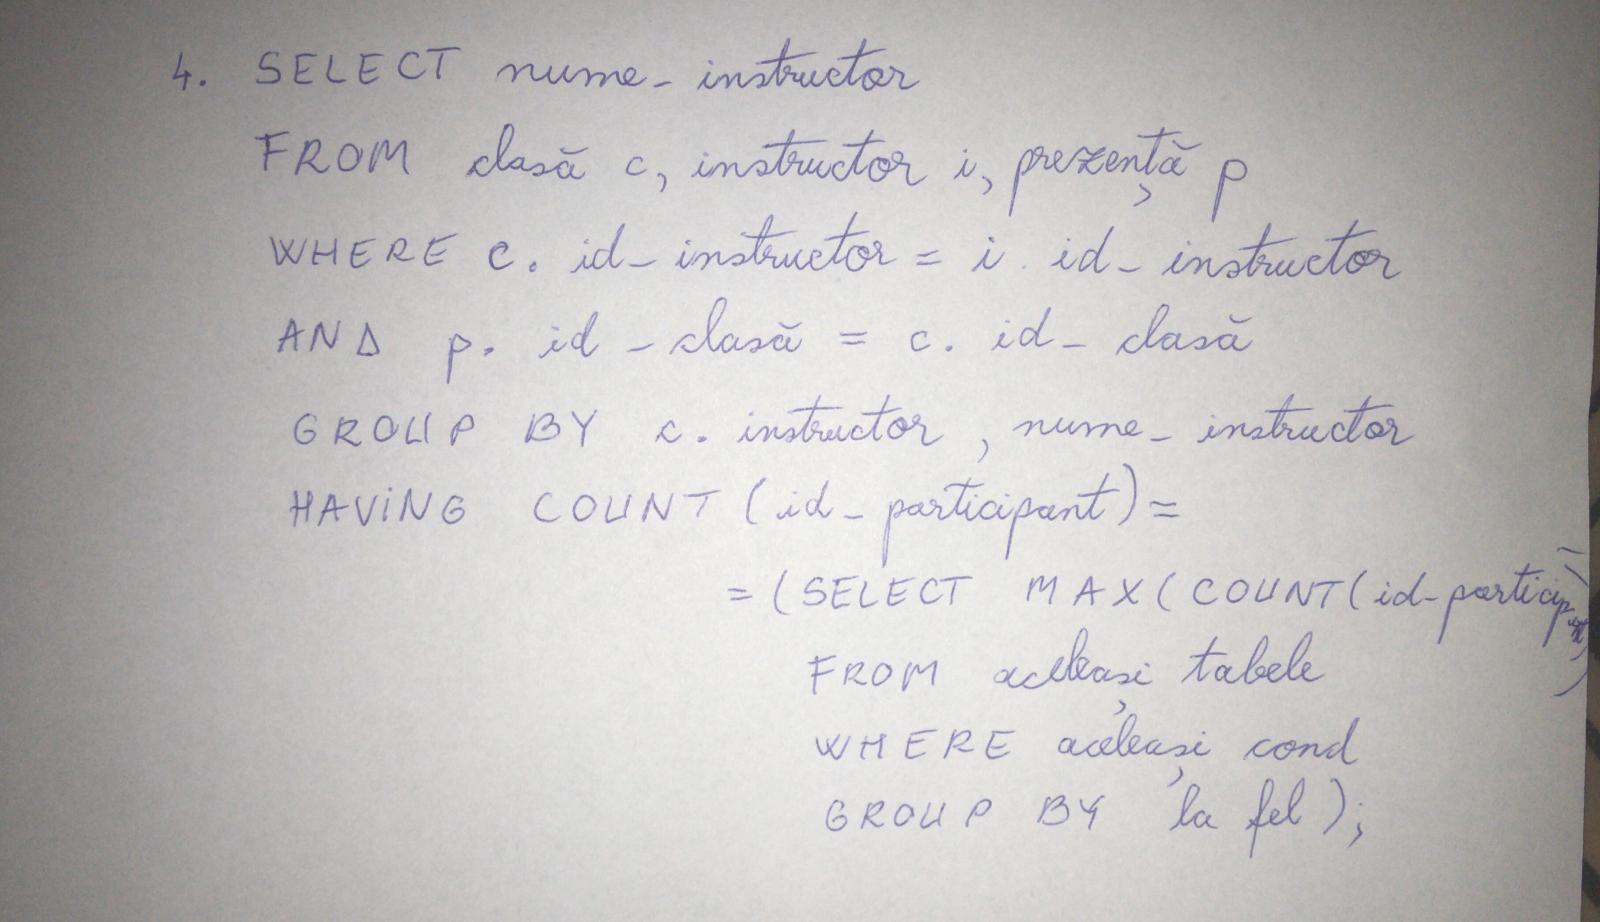 4. SELECT nume_instructor
FROM clasă c, instructor i, prezență p
WHERE c. id_instructor = i. id_instructor
AND p. id_clasă = c. id_clasă
GROUP BY c. instructor, nume_instructor
HAVING COUNT (id_participant) =
= (SELECT MAX(COUNT(id_participant))
FROM aceleași tabele
WHERE aceleași cond
GROUP BY la fel);